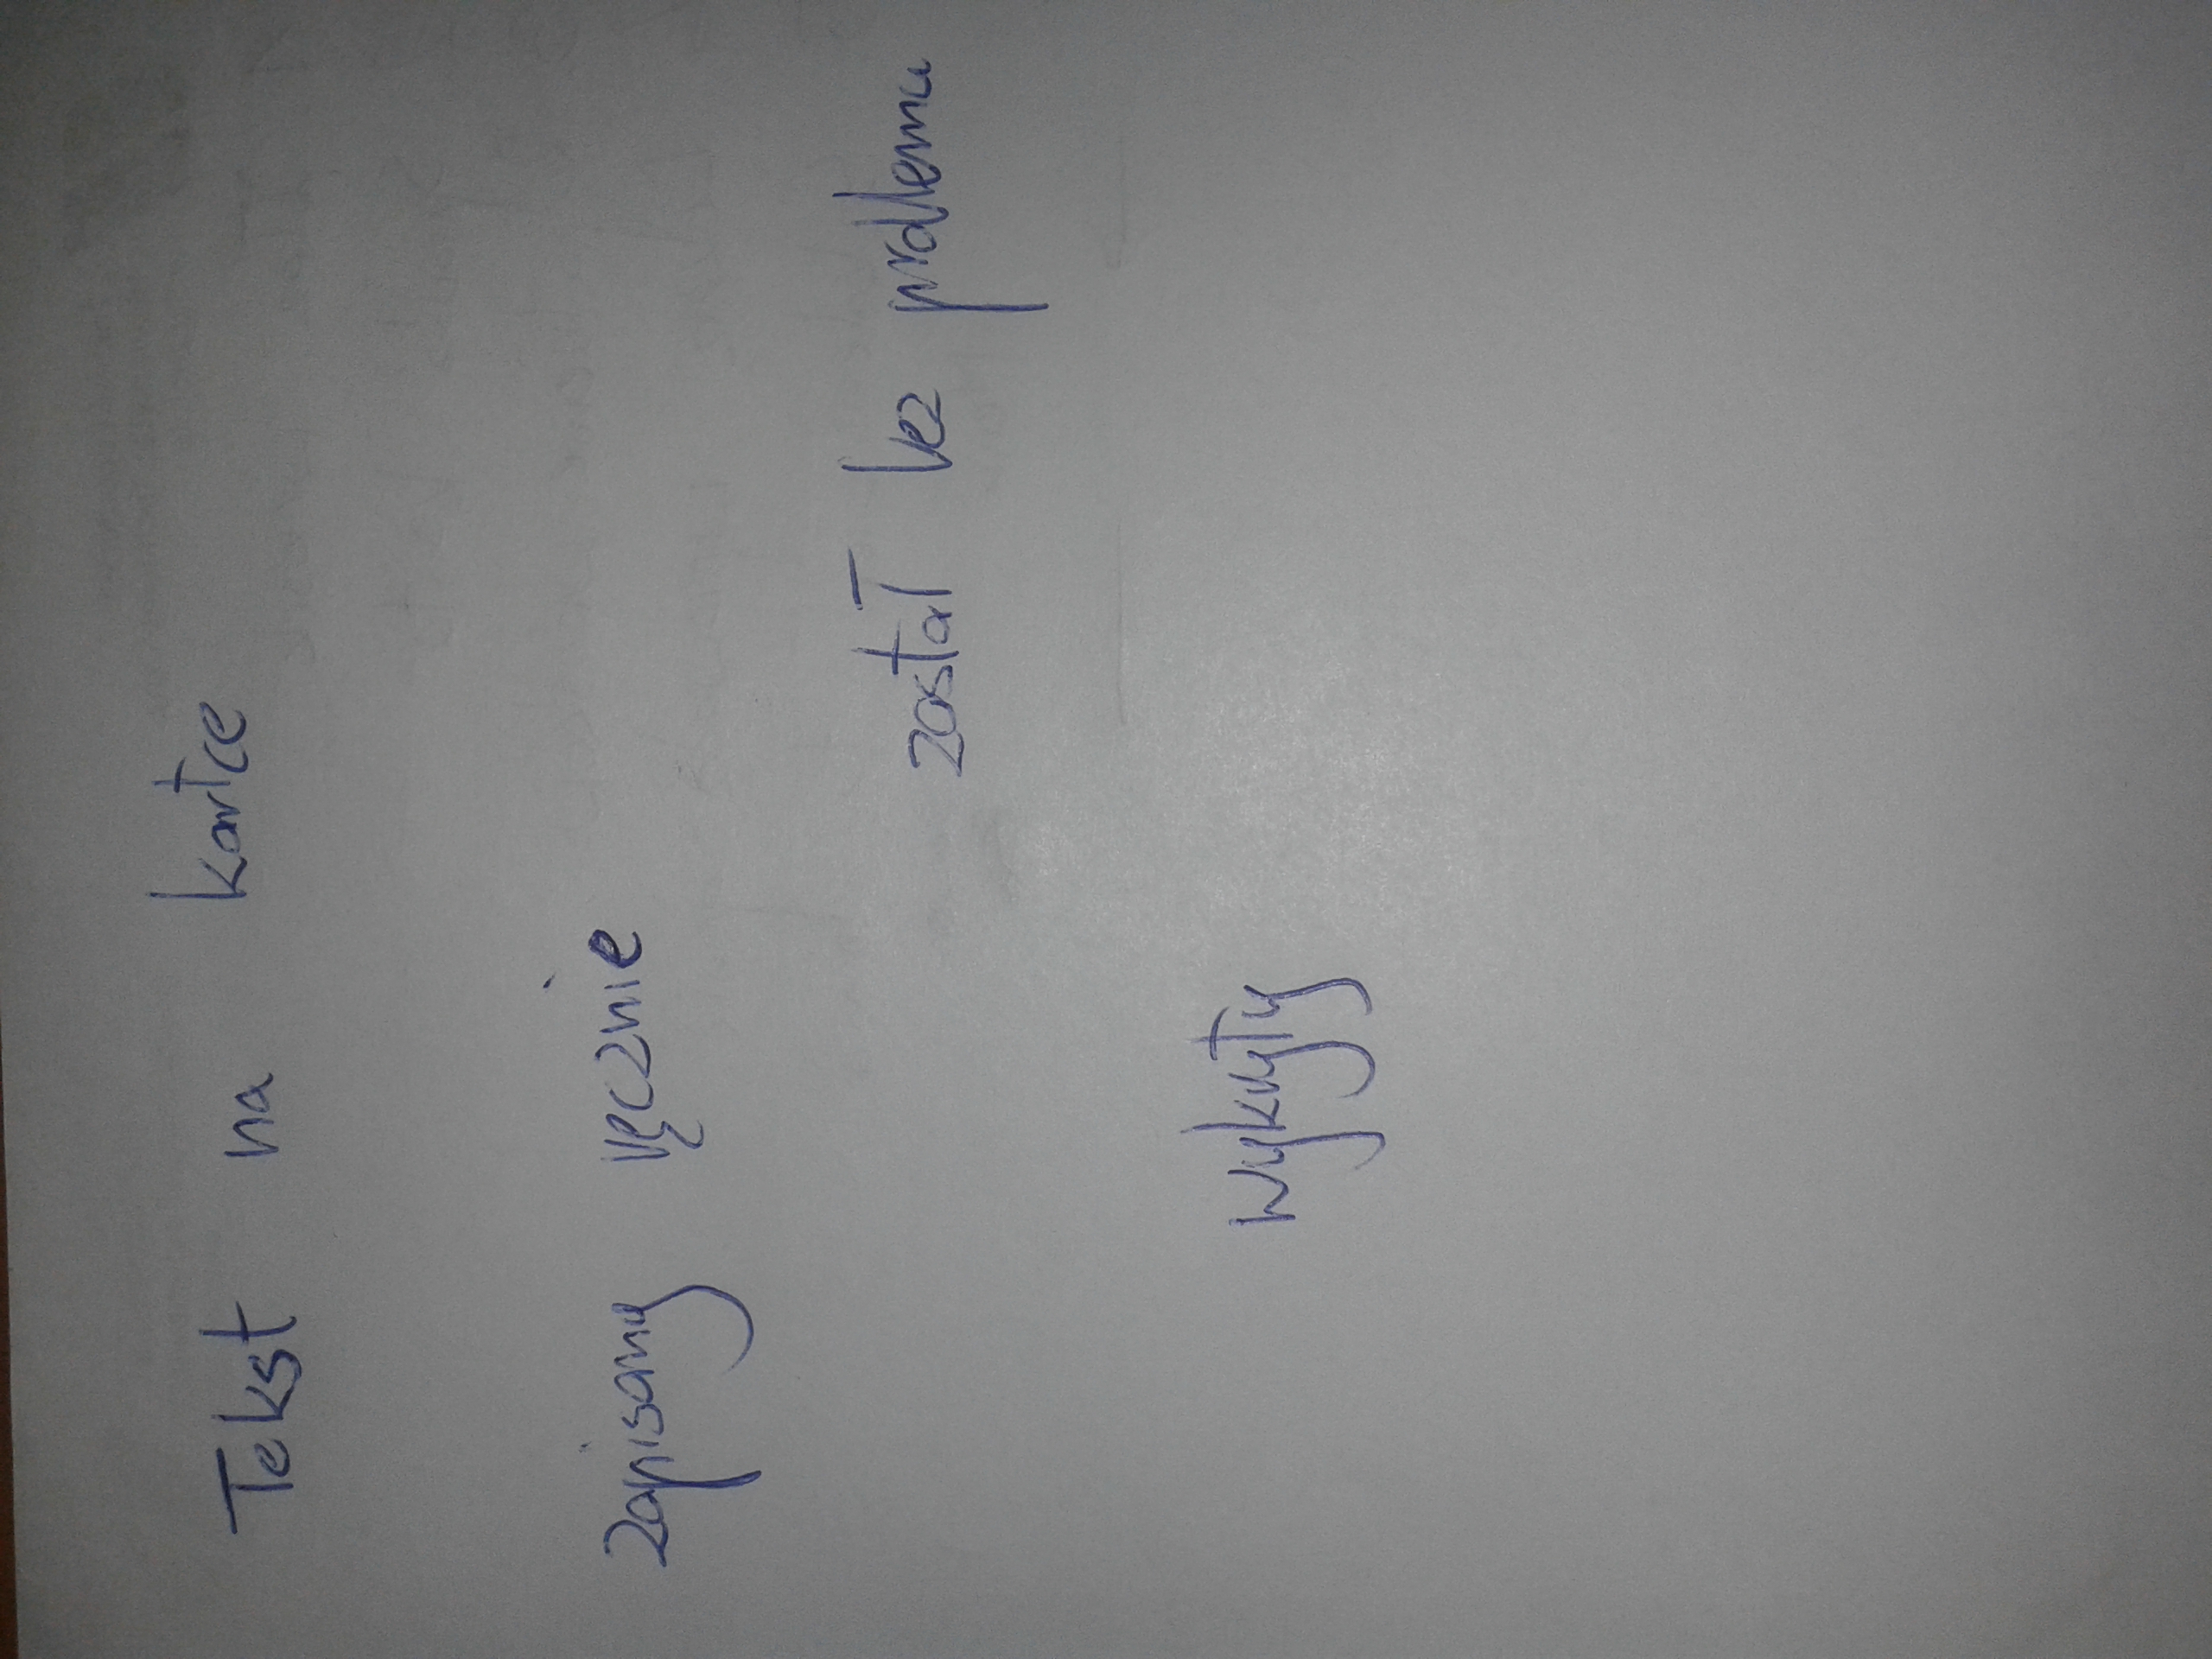 Tekst na kartce
zapisany ręcznie
został bez problemu
wykryty